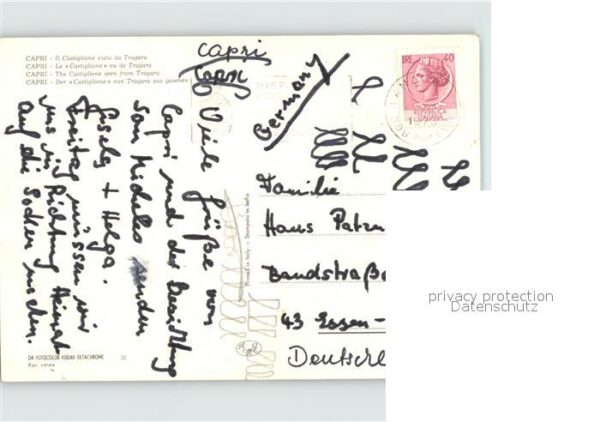 CAPRI - Il Castiglione visto da Tragara
CAPRI - Le «Castiglione» vu de Tragara
CAPRI - The Castiglione seen from Tragara
CAPRI - Der «Castiglione» von Tragara aus gesehen
Capri
Capri
Germany
40
REPVBBLICA
ITALIANA
Viele Grüße von
Capri und der Besichtung
San Michales senden
Gisela + Helga.
Freitag müssen wir
uns in Richtung Heimat
auf die Socken machen.
Familie
Hans
43 Essen-
Printed in Italy - Stampato in Italia
DA FOTOCOLOR KODAK EKTACHROME
Rip. vietata
privacy protection
Datenschutz